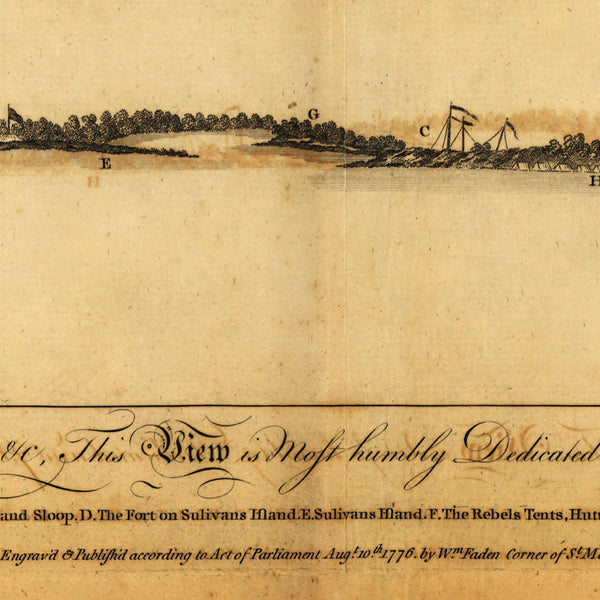 G
C
E
H
H
&c, This View is Moſt humbly Dedicated
and Sloop. D. The Fort on Sulivans Iſland. E. Sulivans Iſland. F. The Rebels Tents, Huts
Engrav'd & Publiſh'd according to Act of Parliament Augt. 10.th 1776. by Wm. Faden Corner of St. Ma